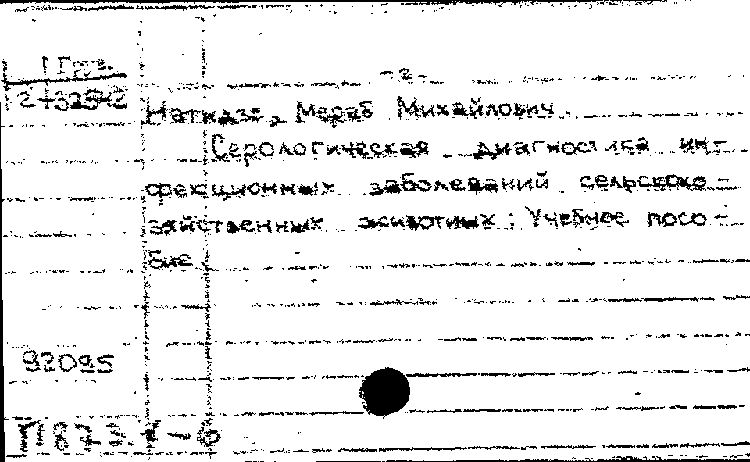 1 Груз.
- 2 -
2-32542
Наткаэе, Мераб Михайлович.
Серологическая диагностика ин-
фекционных заболеваний сельскохо-
зяйственных животных: Учебное посо-
бие
92095
П873.4-6